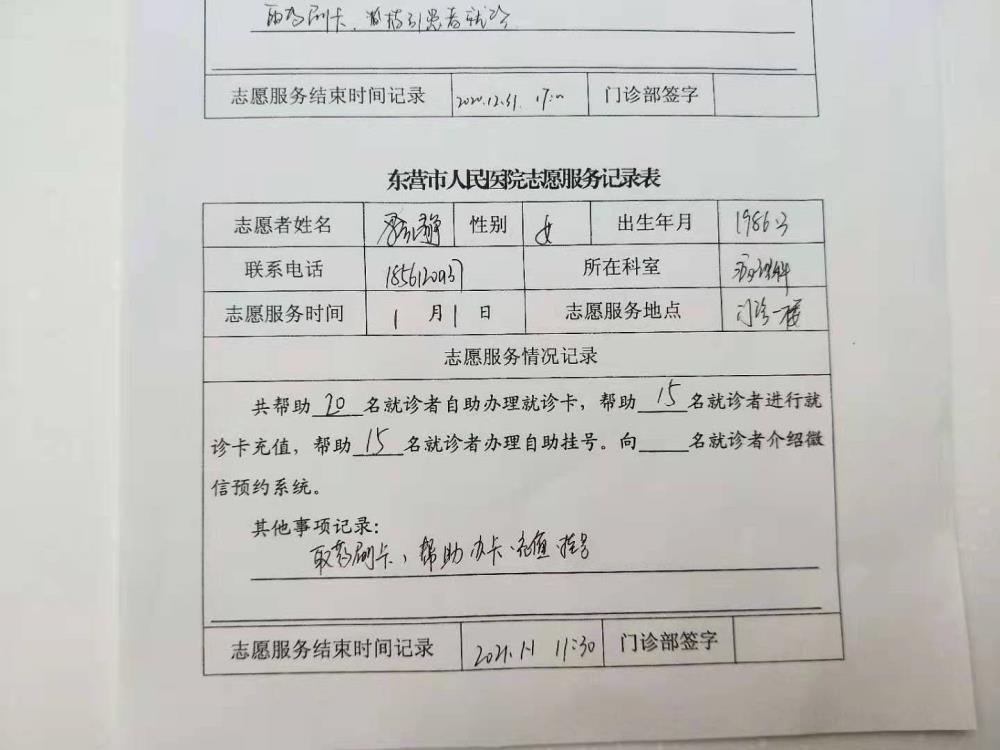 取药刷卡、并指引患者就诊
志愿服务结束时间记录 2020.12.31. 17: 门诊部签字
东营市人民医院志愿服务记录表
志愿者姓名 性别 女 出生年月 1986.3
联系电话 所在科室 病理科
志愿服务时间 1 月 1 日 志愿服务地点 门诊一楼
志愿服务情况记录
共帮助 20 名就诊者自助办理就诊卡，帮助 15 名就诊者进行就
诊卡充值，帮助 15 名就诊者办理自助挂号。向 名就诊者介绍微
信预约系统。
其他事项记录：
取药刷卡、帮助办卡、充值、挂号
志愿服务结束时间记录 2021.1.1 11:30 门诊部签字